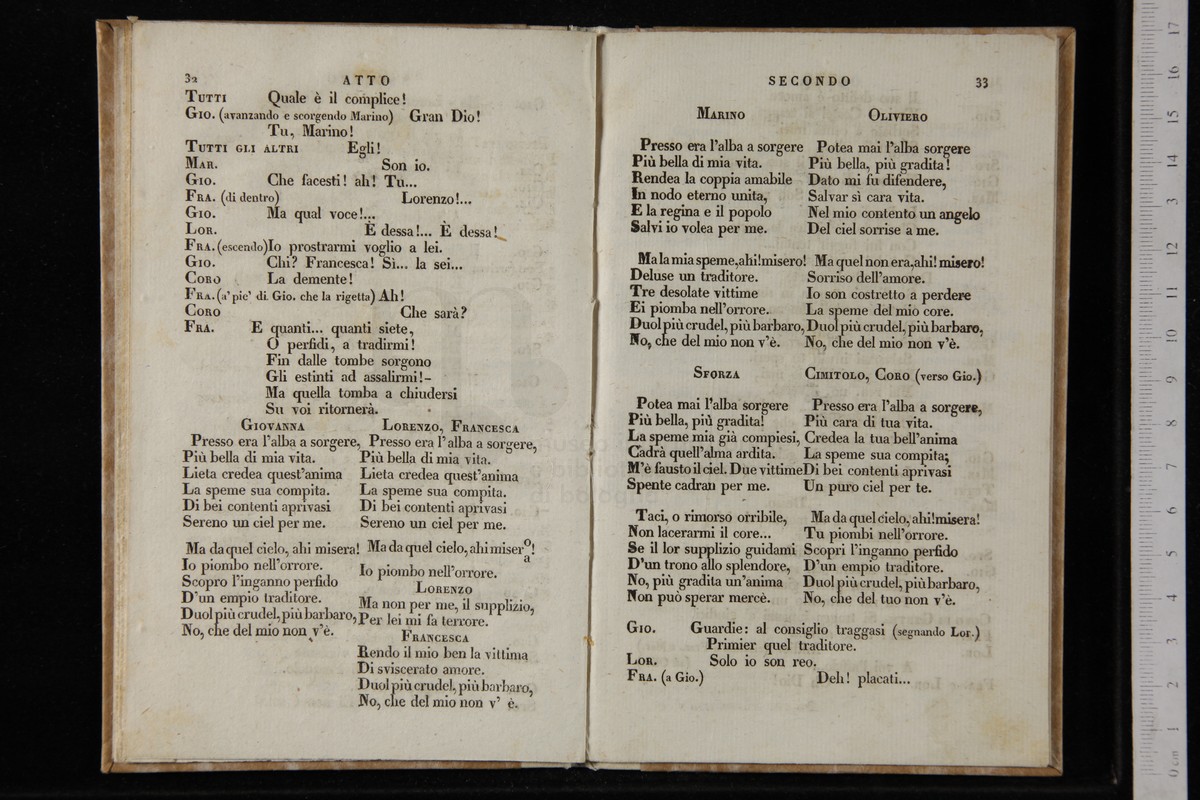 32 ATTO
TUTTI Quale è il complice!
GIO. (avanzando e scorgendo Marino) Gran Dio!
Tu, Marino!
TUTTI GLI ALTRI Egli!
MAR. Son io.
GIO. Che facesti! ah! Tu...
FRA. (di dentro) Lorenzo!...
GIO. Ma qual voce!...
LOR. È dessa!... È dessa!
FRA. (escendo) Io prostrarmi voglio a lei.
GIO. Chi? Francesca! Sì... la sei...
CORO La demente!
FRA. (a' pie' di Gio. che la rigetta) Ah!
CORO Che sarà?
FRA. E quanti... quanti siete,
O perfidi, a tradirmi!
Fin dalle tombe sorgono
Gli estinti ad assalirmi!-
Ma quella tomba a chiudersi
Su voi ritornerà.
GIOVANNA
Presso era l'alba a sorgere,
Più bella di mia vita.
Lieta credea quest'anima
La speme sua compita.
Di bei contenti aprivasi
Sereno un ciel per me.
Ma da quel cielo, ahi misera!
Io piombo nell'orrore.
Scopro l'inganno perfido
D'un empio traditore.
Duol più crudel, più barbaro,
No, che del mio non v'è.
LORENZO, FRANCESCA
Presso era l'alba a sorgere,
Più bella di mia vita.
Lieta credea quest'anima
La speme sua compita.
Di bei contenti aprivasi
Sereno un ciel per me.
Ma da quel cielo, ahi miser o/a!
Io piombo nell'orrore.
LORENZO
Ma non per me, il supplizio,
Per lei mi fa terrore.
FRANCESCA
Rendo il mio ben la vittima
Di sviscerato amore.
Duol più crudel, più barbaro,
No, che del mio non v' è.
SECONDO 33
MARINO
Presso era l'alba a sorgere
Più bella di mia vita.
Rendea la coppia amabile
In nodo eterno unita,
E la regina e il popolo
Salvi io volea per me.
Ma la mia speme, ahi! misero!
Deluse un traditore.
Tre desolate vittime
Ei piomba nell'orrore.
Duol più crudel, più barbaro,
No, che del mio non v'è.
OLIVIERO
Potea mai l'alba sorgere
Più bella, più gradita!
Dato mi fu difendere,
Salvar sì cara vita.
Nel mio contento un angelo
Del ciel sorrise a me.
Ma quel non era, ahi! misero!
Sorriso dell'amore.
Io son costretto a perdere
La speme del mio core.
Duol più crudel, più barbaro,
No, che del mio non v'è.
SFORZA
Potea mai l'alba sorgere
Più bella, più gradita!
La speme mia già compiesi,
Cadrà quell'alma ardita.
M'è fausto il ciel. Due vittime
Spente cadran per me.
Taci, o rimorso orribile,
Non lacerarmi il core...
Se il lor supplizio guidami
D'un trono allo splendore,
No, più gradita un'anima
Non può sperar mercè.
CIMITOLO, CORO (verso Gio.)
Presso era l'alba a sorgere,
Più cara di tua vita.
Credea la tua bell'anima
La speme sua compita;
Di bei contenti aprivasi
Un puro ciel per te.
Ma da quel cielo, ahi! misera!
Tu piombi nell'orrore.
Scopri l'inganno perfido
D'un empio traditore.
Duol più crudel, più barbaro,
No, che del tuo non v'è.
GIO. Guardie: al consiglio traggasi (segnando Lor.)
Primier quel traditore.
LOR. Solo io son reo.
FRA. (a Gio.) Deh! placati...
0 cm 1 2 3 4 5 6 7 8 9 10 11 12 13 14 15 16 17